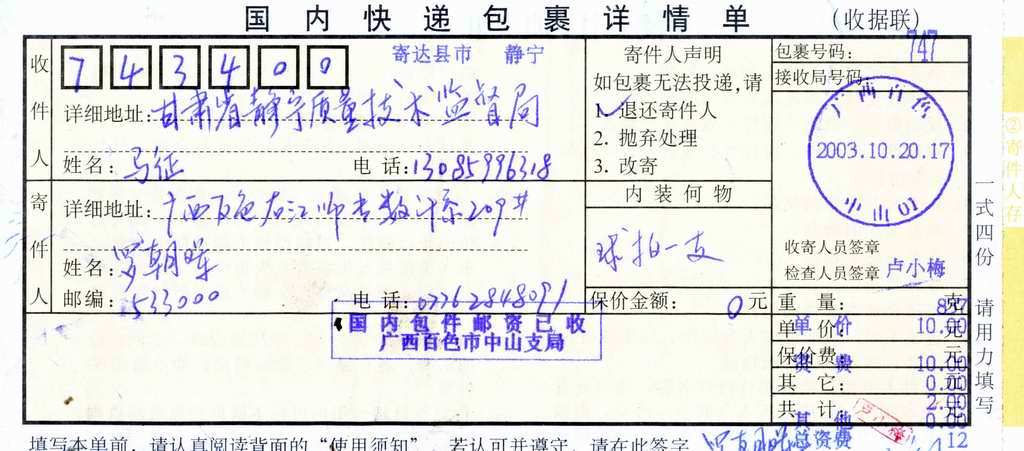 国内快递包裹详情单 (收据联)
收件人
743400
寄达县市 静宁
详细地址:甘肃省静宁质量技术监督局
姓名:马征 电话:13085996318
寄件人
详细地址:广西百色右江师专数计系209#
姓名:罗朝晖
邮编:533000 电话:07762848091
国内包件邮资已收
广西百色市中山支局
寄件人声明
如包裹无法投递,请
1. 退还寄件人
2. 抛弃处理
3. 改寄
内装何物
球拍一支
保价金额: 0元
包裹号码: 747
接收局号码:
广西百色
2003.10.20.17
中山
收寄人员签章
检查人员签章 卢小梅
重量: 克
单价: 元
单价 10.00
保价费: 元
资费 10.00
其它: 元
0.00
共计: 2.00
其他 0.00
总资费 12
填写本单前,请认真阅读背面的“使用须知”,若认可并遵守,请在此签字 罗朝晖
一式四份 请用力填写
②寄件人存